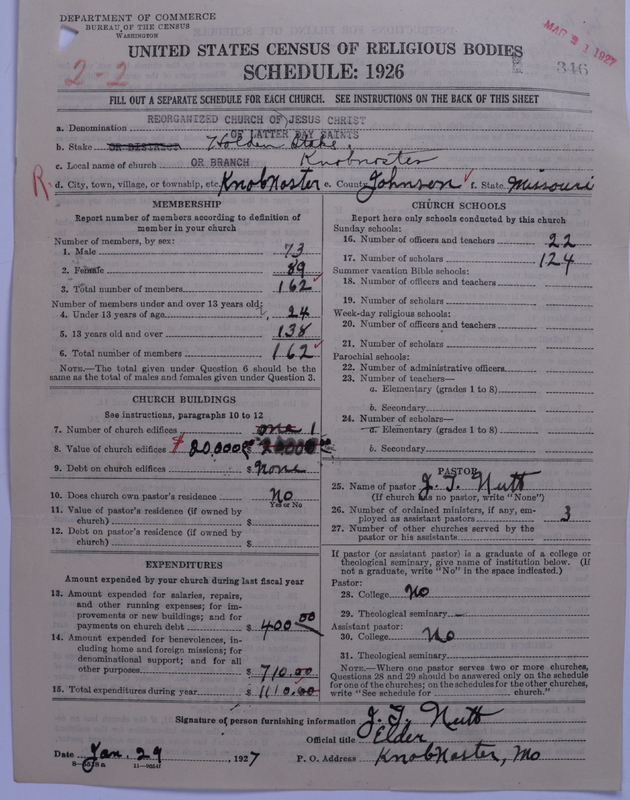 DEPARTMENT OF COMMERCE
BUREAU OF THE CENSUS
WASHINGTON
MAR 31 1927
2-2
UNITED STATES CENSUS OF RELIGIOUS BODIES
SCHEDULE: 1926
346
FILL OUT A SEPARATE SCHEDULE FOR EACH CHURCH. SEE INSTRUCTIONS ON THE BACK OF THIS SHEET
REORGANIZED CHURCH OF JESUS CHRIST
a. Denomination OF LATTER DAY SAINTS
b. Stake OR DISTRICT Holden Stake.
c. Local name of church OR BRANCH Knobnoster
R. d. City, town, village, or township, etc. KnobNoster e. County Johnson f. State Missouri
MEMBERSHIP
Report number of members according to definition of
member in your church
Number of members, by sex:
1. Male 73
2. Female 89
3. Total number of members 162
Number of members under and over 13 years old:
4. Under 13 years of age 24
5. 13 years old and over 138
6. Total number of members 162
NOTE.—The total given under Question 6 should be
same as the total of males and females given under Question 3.
CHURCH BUILDINGS
See instructions, paragraphs 10 to 12
7. Number of church edifices one 1
8. Value of church edifices $ 20,000
9. Debt on church edifices $ None
10. Does church own pastor's residence No
Yes or No
11. Value of pastor's residence (if owned by
church) $
12. Debt on pastor's residence (if owned by
church) $
EXPENDITURES
Amount expended by your church during last fiscal year
13. Amount expended for salaries, repairs,
and other running expenses; for im-
provements or new buildings; and for
payments on church debt $ 400.00
14. Amount expended for benevolences, in-
cluding home and foreign missions; for
denominational support; and for all
other purposes $ 710.00
15. Total expenditures during year $ 1110.00
CHURCH SCHOOLS
Report here only schools conducted by this church
Sunday schools:
16. Number of officers and teachers 22
17. Number of scholars 124
Summer vacation Bible schools:
18. Number of officers and teachers
19. Number of scholars
Week-day religious schools:
20. Number of officers and teachers
21. Number of scholars
Parochial schools:
22. Number of administrative officers
23. Number of teachers—
a. Elementary (grades 1 to 8)
b. Secondary
24. Number of scholars—
a. Elementary (grades 1 to 8)
b. Secondary
PASTOR
25. Name of pastor J. T. Nutt
(If church has no pastor, write "None")
26. Number of ordained ministers, if any, em-
ployed as assistant pastors 3
27. Number of other churches served by the
pastor or his assistants
If pastor (or assistant pastor) is a graduate of a college or
theological seminary, give name of institution below. (If
not a graduate, write "No" in the space indicated.)
Pastor:
28. College No
29. Theological seminary
Assistant pastor:
30. College No
31. Theological seminary
NOTE.—Where one pastor serves two or more churches,
Questions 28 and 29 should be answered only on the schedule
for one of the churches; on the schedules for the other churches,
write "See schedule for church."
Signature of person furnishing information J. T. Nutt
Official title Elder
Date Jan. 29, 1927 P. O. Address KnobNoster, Mo